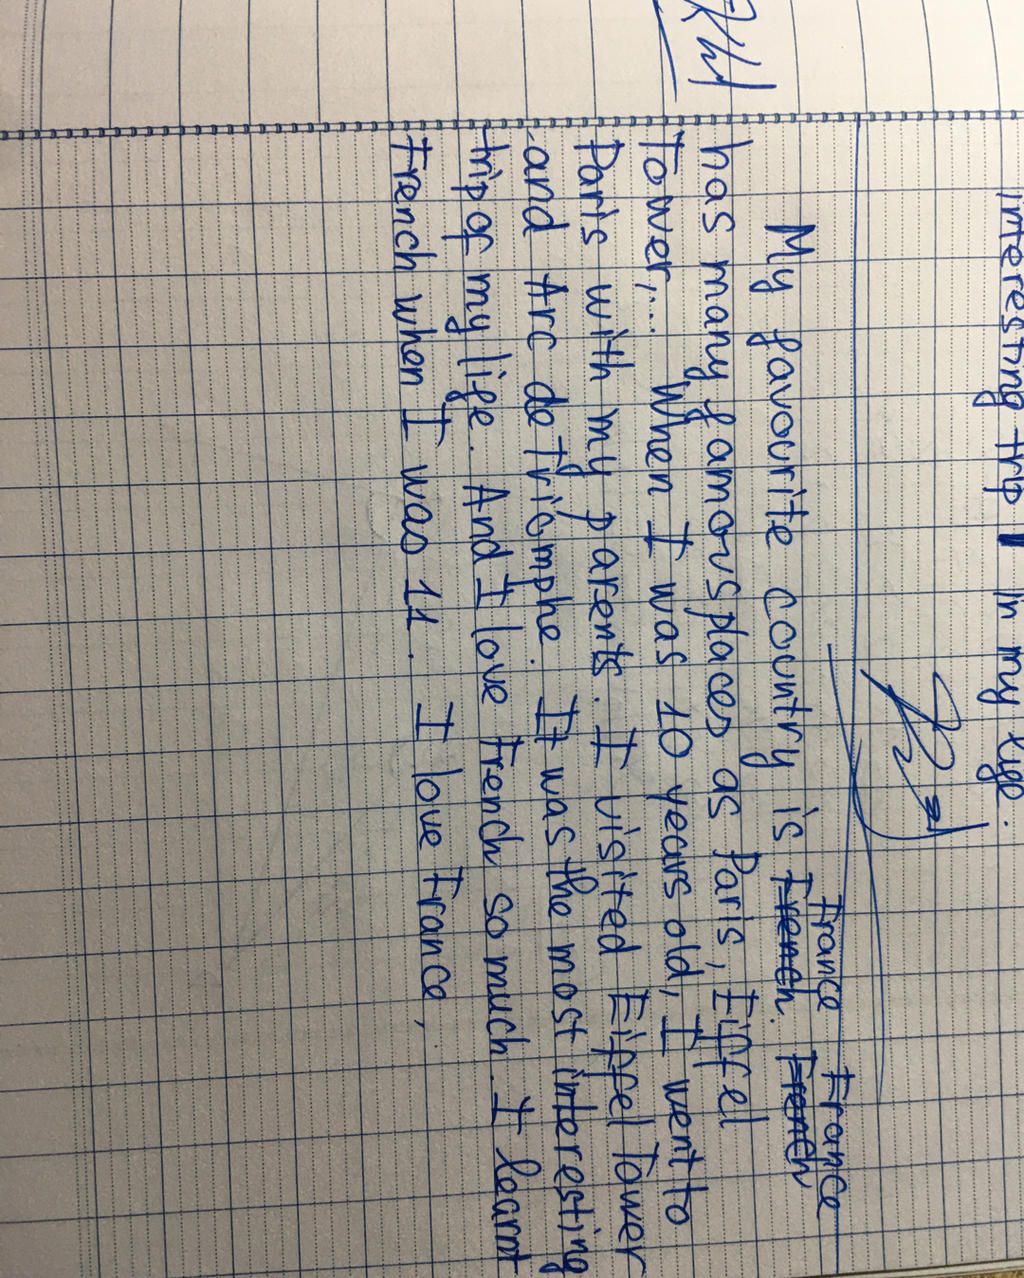 interesting trip in my life.
France France
My favourite country is French. French
has many famous places as Paris, Eiffel
Tower,... When I was 10 years old, I went to
Paris with my parents. I visited Eiffel Tower
and Arc de Triomphe. It was the most interesting
trip of my life. And I love French so much. I learnt
French when I was 11. I love France,